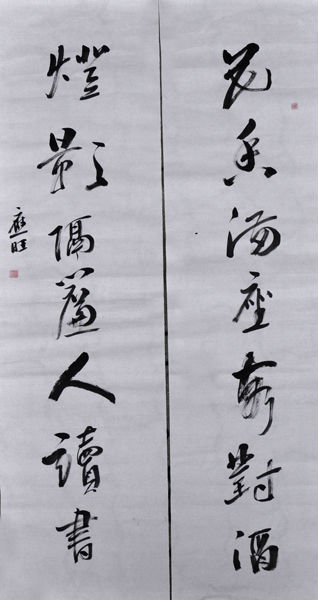 花香滿座客對酒
燈影隔簾人讀書
應旺